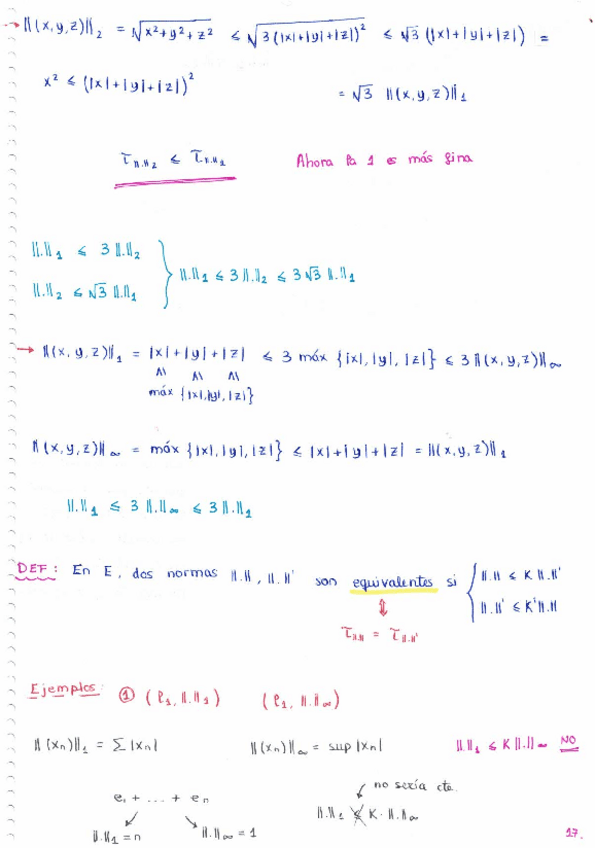 → ‖(x,y,z)‖₂ = √(x²+y²+z²) ≤ √(3(|x|+|y|+|z|)²) ≤ √3 (|x|+|y|+|z|) =
x² ≤ (|x|+|y|+|z|)²
= √3 ‖(x,y,z)‖₁
τ‖.‖₂ ≤ τ‖.‖₁ Ahora la 1 es más fina
‖.‖₁ ≤ 3 ‖.‖₂
‖.‖₂ ≤ √3 ‖.‖₁ } ‖.‖₁ ≤ 3 ‖.‖₂ ≤ 3√3 ‖.‖₁
→ ‖(x,y,z)‖₁ = |x|+|y|+|z| ≤ 3 máx {|x|,|y|,|z|} ≤ 3 ‖(x,y,z)‖∞
≤ ≤ ≤
máx {|x|,|y|,|z|}
‖(x,y,z)‖∞ = máx {|x|,|y|,|z|} ≤ |x|+|y|+|z| = ‖(x,y,z)‖₁
‖.‖₁ ≤ 3 ‖.‖∞ ≤ 3 ‖.‖₁
DEF: En E, dos normas ‖.‖, ‖.‖' son equivalentes si { ‖.‖ ≤ K ‖.‖'
‖.‖' ≤ K' ‖.‖
⇕
τ‖.‖ = τ‖.‖'
Ejemplos: ① (ℓ₁, ‖.‖₁) (ℓ₁, ‖.‖∞)
‖(xₙ)‖₁ = Σ|xₙ| ‖(xₙ)‖∞ = sup |xₙ| ‖.‖₁ ≤ K ‖.‖∞ NO
no sería cte.
e₁ + ... + eₙ
‖.‖₁ ≰ K · ‖.‖∞
‖.‖₁ = n ‖.‖∞ = 1
17.